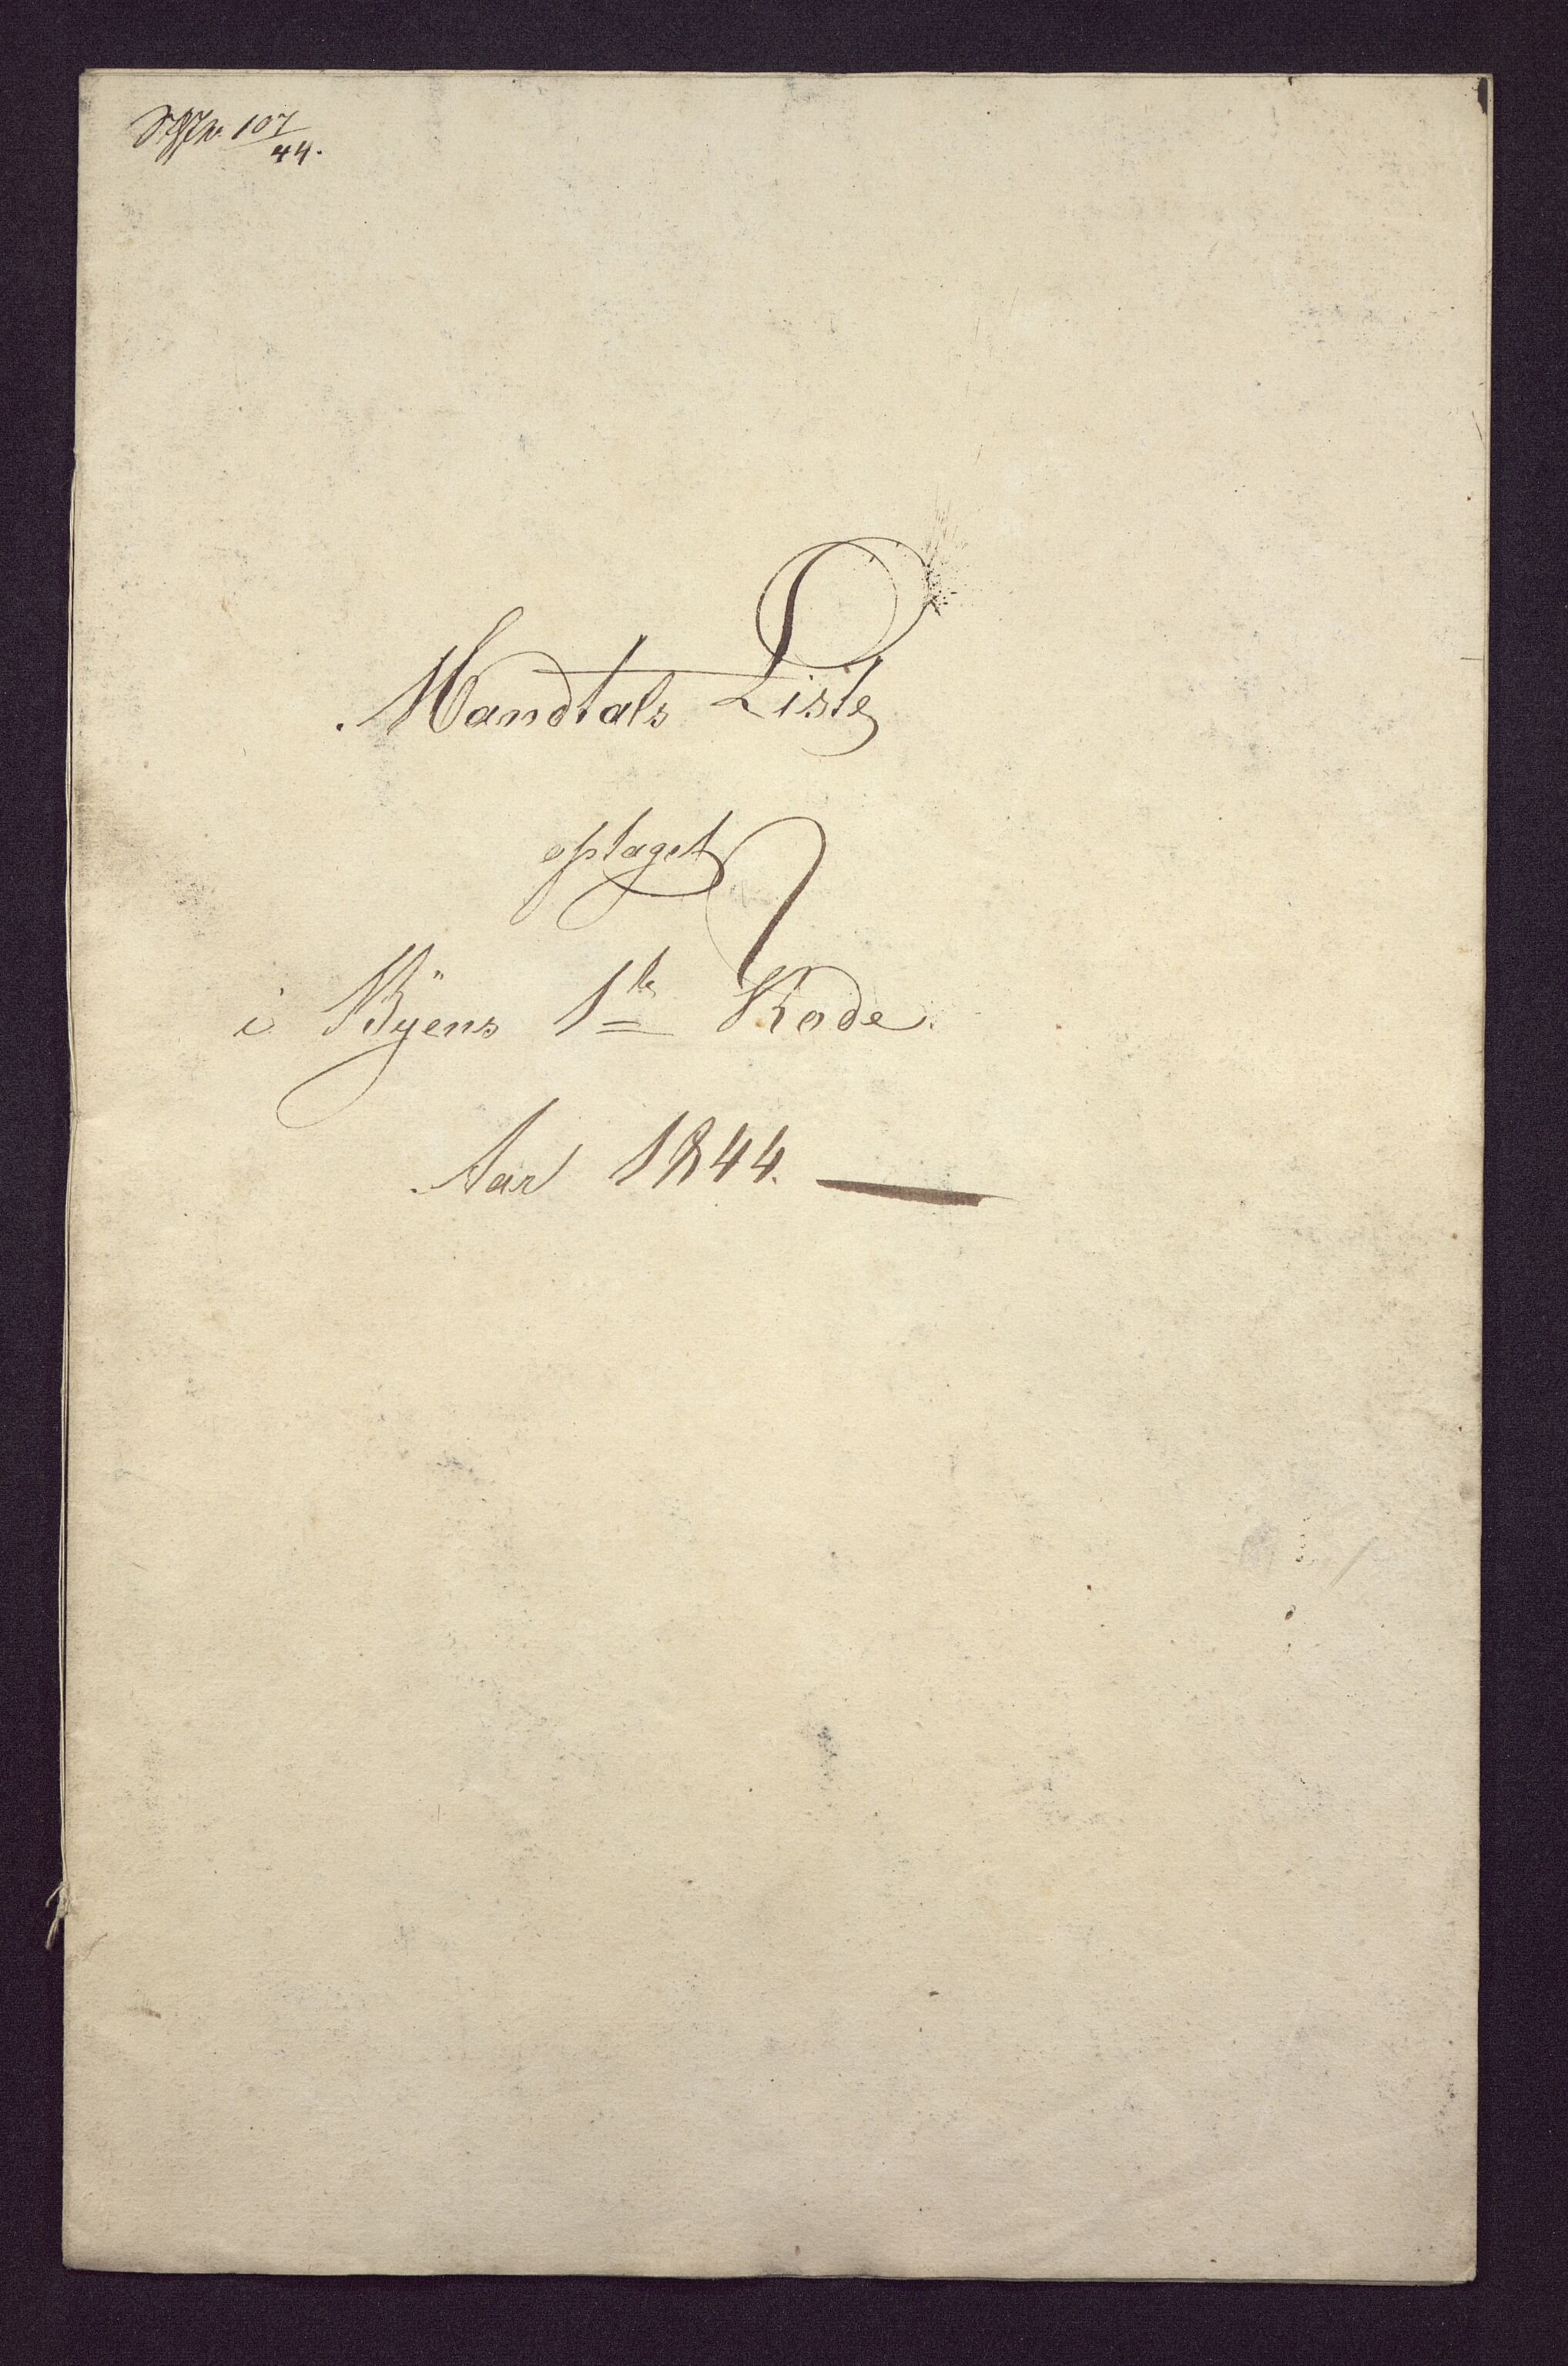 107/44.
Mandtals Liste
optaget
i Byens 1te Rode.
Aar 1844.